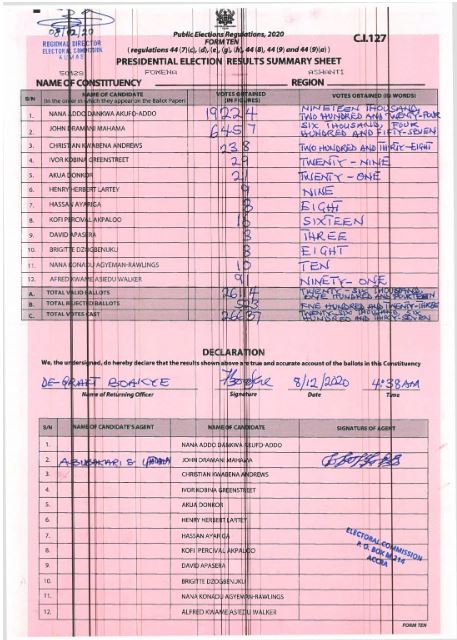 08/12/20
REGIONAL DIRECTOR
ELECTORAL COMMISSION
KUMASI
Public Elections Regulations, 2020
FORM TEN
C.I.127
(regulations 44 (7)(c), (d), (e), (g), (h), 44 (8), 44 (9) and 44 (9)(a))
PRESIDENTIAL ELECTION RESULTS SUMMARY SHEET
FOMENA ASHANTI
NAME OF CONSTITUENCY REGION
S/N NAME OF CANDIDATE (In the order in which they appear on the Ballot Paper) VOTES OBTAINED (IN FIGURES) VOTES OBTAINED (IN WORDS)
1. NANA ADDO DANKWA AKUFO-ADDO 19224 NINETEEN THOUSAND, TWO HUNDRED AND TWENTY-FOUR
2. JOHN DRAMANI MAHAMA 6457 SIX THOUSAND, FOUR HUNDRED AND FIFTY-SEVEN
3. CHRISTIAN KWABENA ANDREWS 238 TWO HUNDRED AND THIRTY-EIGHT
4. IVOR KOBINA GREENSTREET 29 TWENTY-NINE
5. AKUA DONKOR 21 TWENTY-ONE
6. HENRY HERBERT LARTEY 9 NINE
7. HASSAN AYARIGA 8 EIGHT
8. KOFI PERCIVAL AKPALOO 16 SIXTEEN
9. DAVID APASERA 3 THREE
10. BRIGITTE DZOGBENUKU 8 EIGHT
11. NANA KONADU AGYEMAN-RAWLINGS 10 TEN
12. ALFRED KWAME ASIEDU WALKER 91 NINETY-ONE
A. TOTAL VALID BALLOTS 26114 TWENTY-SIX THOUSAND, ONE HUNDRED AND FOURTEEN
B. TOTAL REJECTED BALLOTS 523 FIVE HUNDRED AND TWENTY-THREE
C. TOTAL VOTES CAST 26637 TWENTY-SIX THOUSAND, SIX HUNDRED AND THIRTY-SEVEN
DECLARATION
We, the undersigned, do hereby declare that the results shown above are true and accurate account of the ballots in this Constituency
DE-GRAFT BOAKYE 8/12/2020 4:38AM
Name of Returning Officer Signature Date Time
S/N NAME OF CANDIDATE'S AGENT NAME OF CANDIDATE SIGNATURE OF AGENT
1. NANA ADDO DANKWA AKUFO-ADDO
2. ABUBAKARI S JOHN DRAMANI MAHAMA
3. CHRISTIAN KWABENA ANDREWS
4. IVOR KOBINA GREENSTREET
5. AKUA DONKOR
6. HENRY HERBERT LARTEY
7. HASSAN AYARIGA
8. KOFI PERCIVAL AKPALOO
9. DAVID APASERA
10. BRIGITTE DZOGBENUKU
11. NANA KONADU AGYEMAN-RAWLINGS
12. ALFRED KWAME ASIEDU WALKER
ELECTORAL COMMISSION
P. O. BOX M 214
ACCRA
FORM TEN